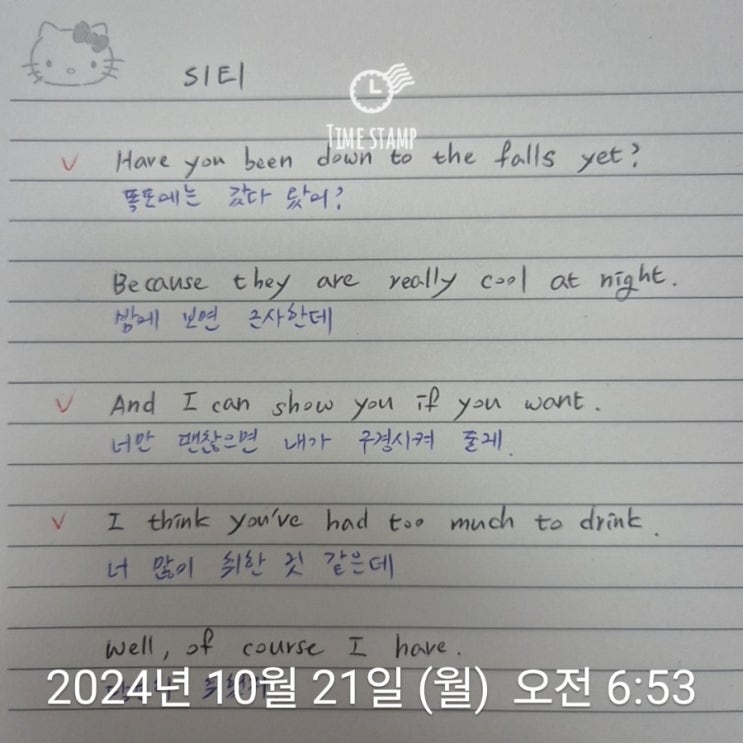 S1E1
TIME STAMP
✓ Have you been down to the falls yet?
폭포에는 갔다 왔어?
Because they are really cool at night.
밤에 보면 근사한데
✓ And I can show you if you want.
너만 괜찮으면 내가 구경시켜 줄게.
✓ I think you've had too much to drink.
너 많이 취한 것 같은데
Well, of course I have.
2024년 10월 21일 (월) 오전 6:53